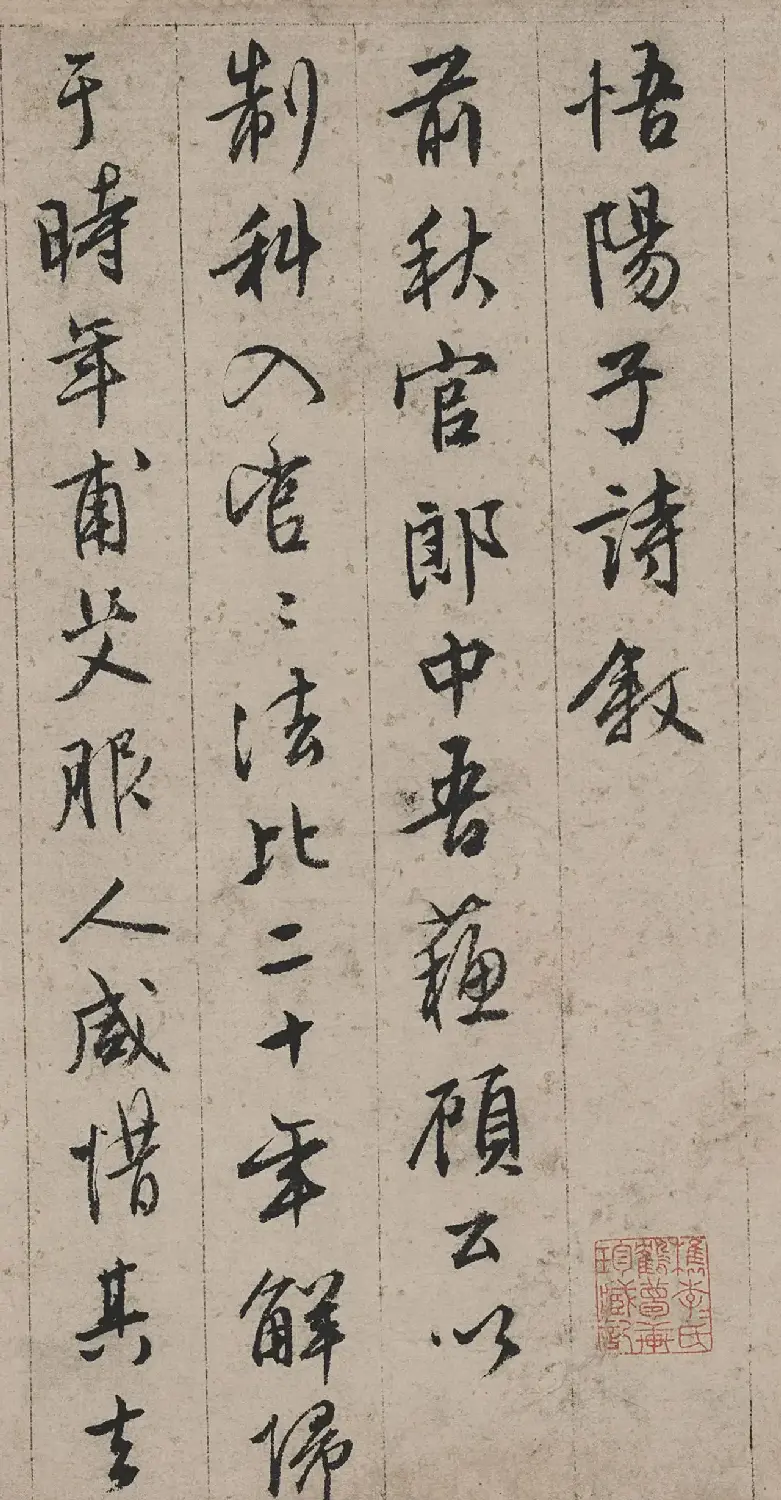 悟陽子詩敘
前秋官郎中吾蘇顧公以
制科入官〻法比二十年解歸
于時年甫艾服人咸惜其去